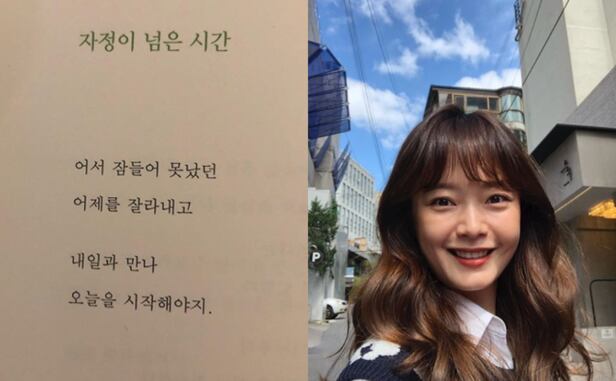 자정이 넘은 시간
어서 잠들어 못났던
어제를 잘라내고
내일과 만나
오늘을 시작해야지.
P